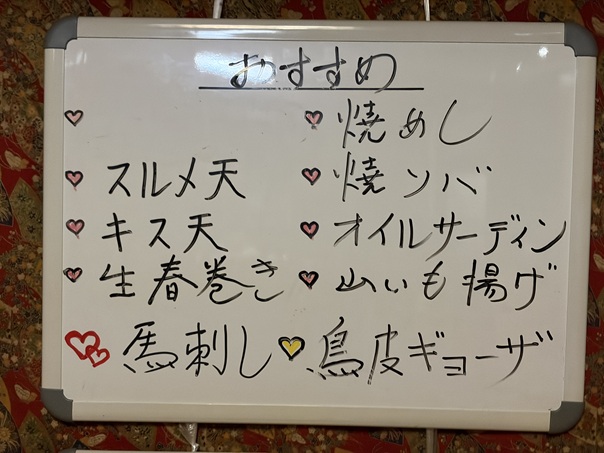 おすすめ
焼めし
スルメ天 焼ソバ
キス天 オイルサーディン
生春巻き 山いも揚げ
馬刺し 鳥皮ギョーザ